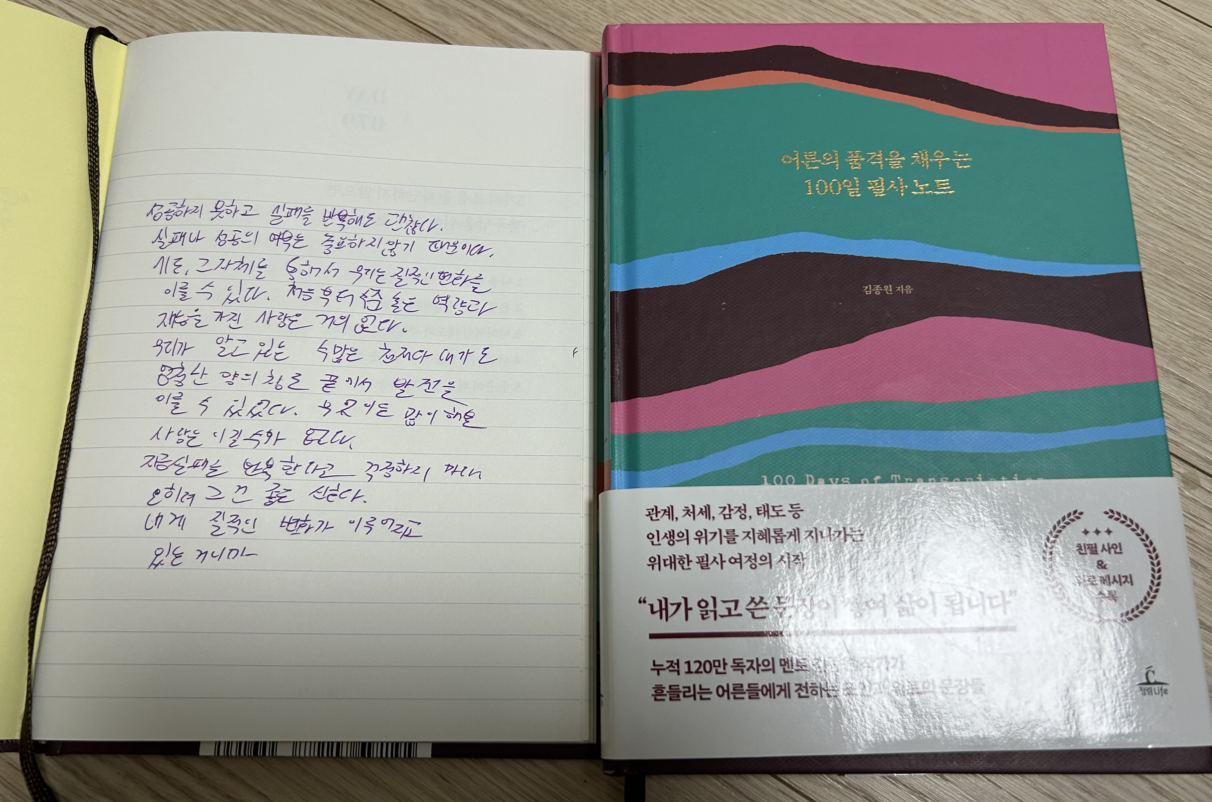 성공하지 못하고 실패를 반복해도 괜찮다.
실패나 성공의 여부는 중요하지 않기 때문이다.
시도, 그 자체를 통해서 우리는 질적인 변화를
이룰 수 있다. 처음부터 수준 높은 역량과
재능을 가진 사람은 거의 없다.
우리가 알고 있는 수많은 천재와 대가도
엄청난 양의 힘으로 끝에서 발전을
이룰 수 있었다. 무엇이든 많이 해본
사람은 이길 수가 없다.
지금 실패를 반복한다고 걱정하지 마라
오히려 그건 좋은 신호다.
내게 질적인 변화가 이루어지고
있는 거니까
어른의 품격을 채우는
100일 필사 노트
김종원 지음
100 Days of Transcription
관계, 처세, 감정, 태도 등
인생의 위기를 지혜롭게 지나가는
위대한 필사 여정의 시작
“내가 읽고 쓴 문장이 쌓여 삶이 됩니다”
누적 120만 독자의 멘토
흔들리는 어른들에게 전하는 문장들
친필 사인
&
메시지
수록
청림Life